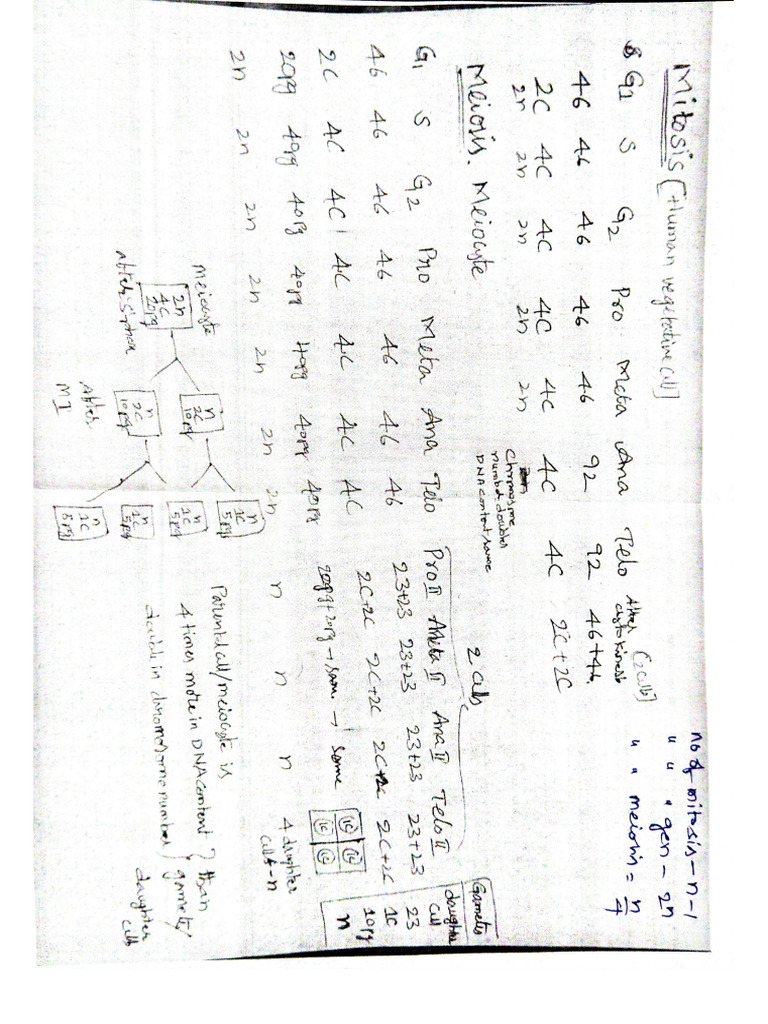 Mitosis [Human vegetative cell]
G1 S G2 Pro Meta Ana Telo After cytokinesis [2 cells]
46 46 46 46 46 92 92 46+46
2C 4C 4C 4C 4C 4C 4C 2C+2C
2n 2n 2n 2n 2n
Chromosome
number doubles
DNA content same
2 cells
no of mitosis - n-1
" " " gen - 2n
" " meiosis = n/4
Meiosis. Meiocyte
G1 S G2 Pro Meta Ana Telo Pro II Meta II Ana II Telo II
46 46 46 46 46 46 46 23+23 23+23 23+23 23+23
2C 4C 4C 4C 4C 4C 4C 2C+2C 2C+2C 2C+2C 2C+2C
20pg 40pg 40pg 40pg 40pg 40pg 40pg 20pg+20pg → same → same
1C 1C
1C 1C
2n 2n 2n 2n 2n 2n 2n n n n 4 daughter
cells - n
Gametes
daughter
cell
23
1C
10pg
n
meiocyte
2n
4C
20pg
after S phase
n
2C
10pg
n
2C
10pg
After
M I
n
1C
5pg
n
1C
5pg
n
1C
5pg
n
1C
5pg
Parental cell/meiocyte is
4 times more in DNA content } than
double in chromosome number } gamete/
daughter
cells